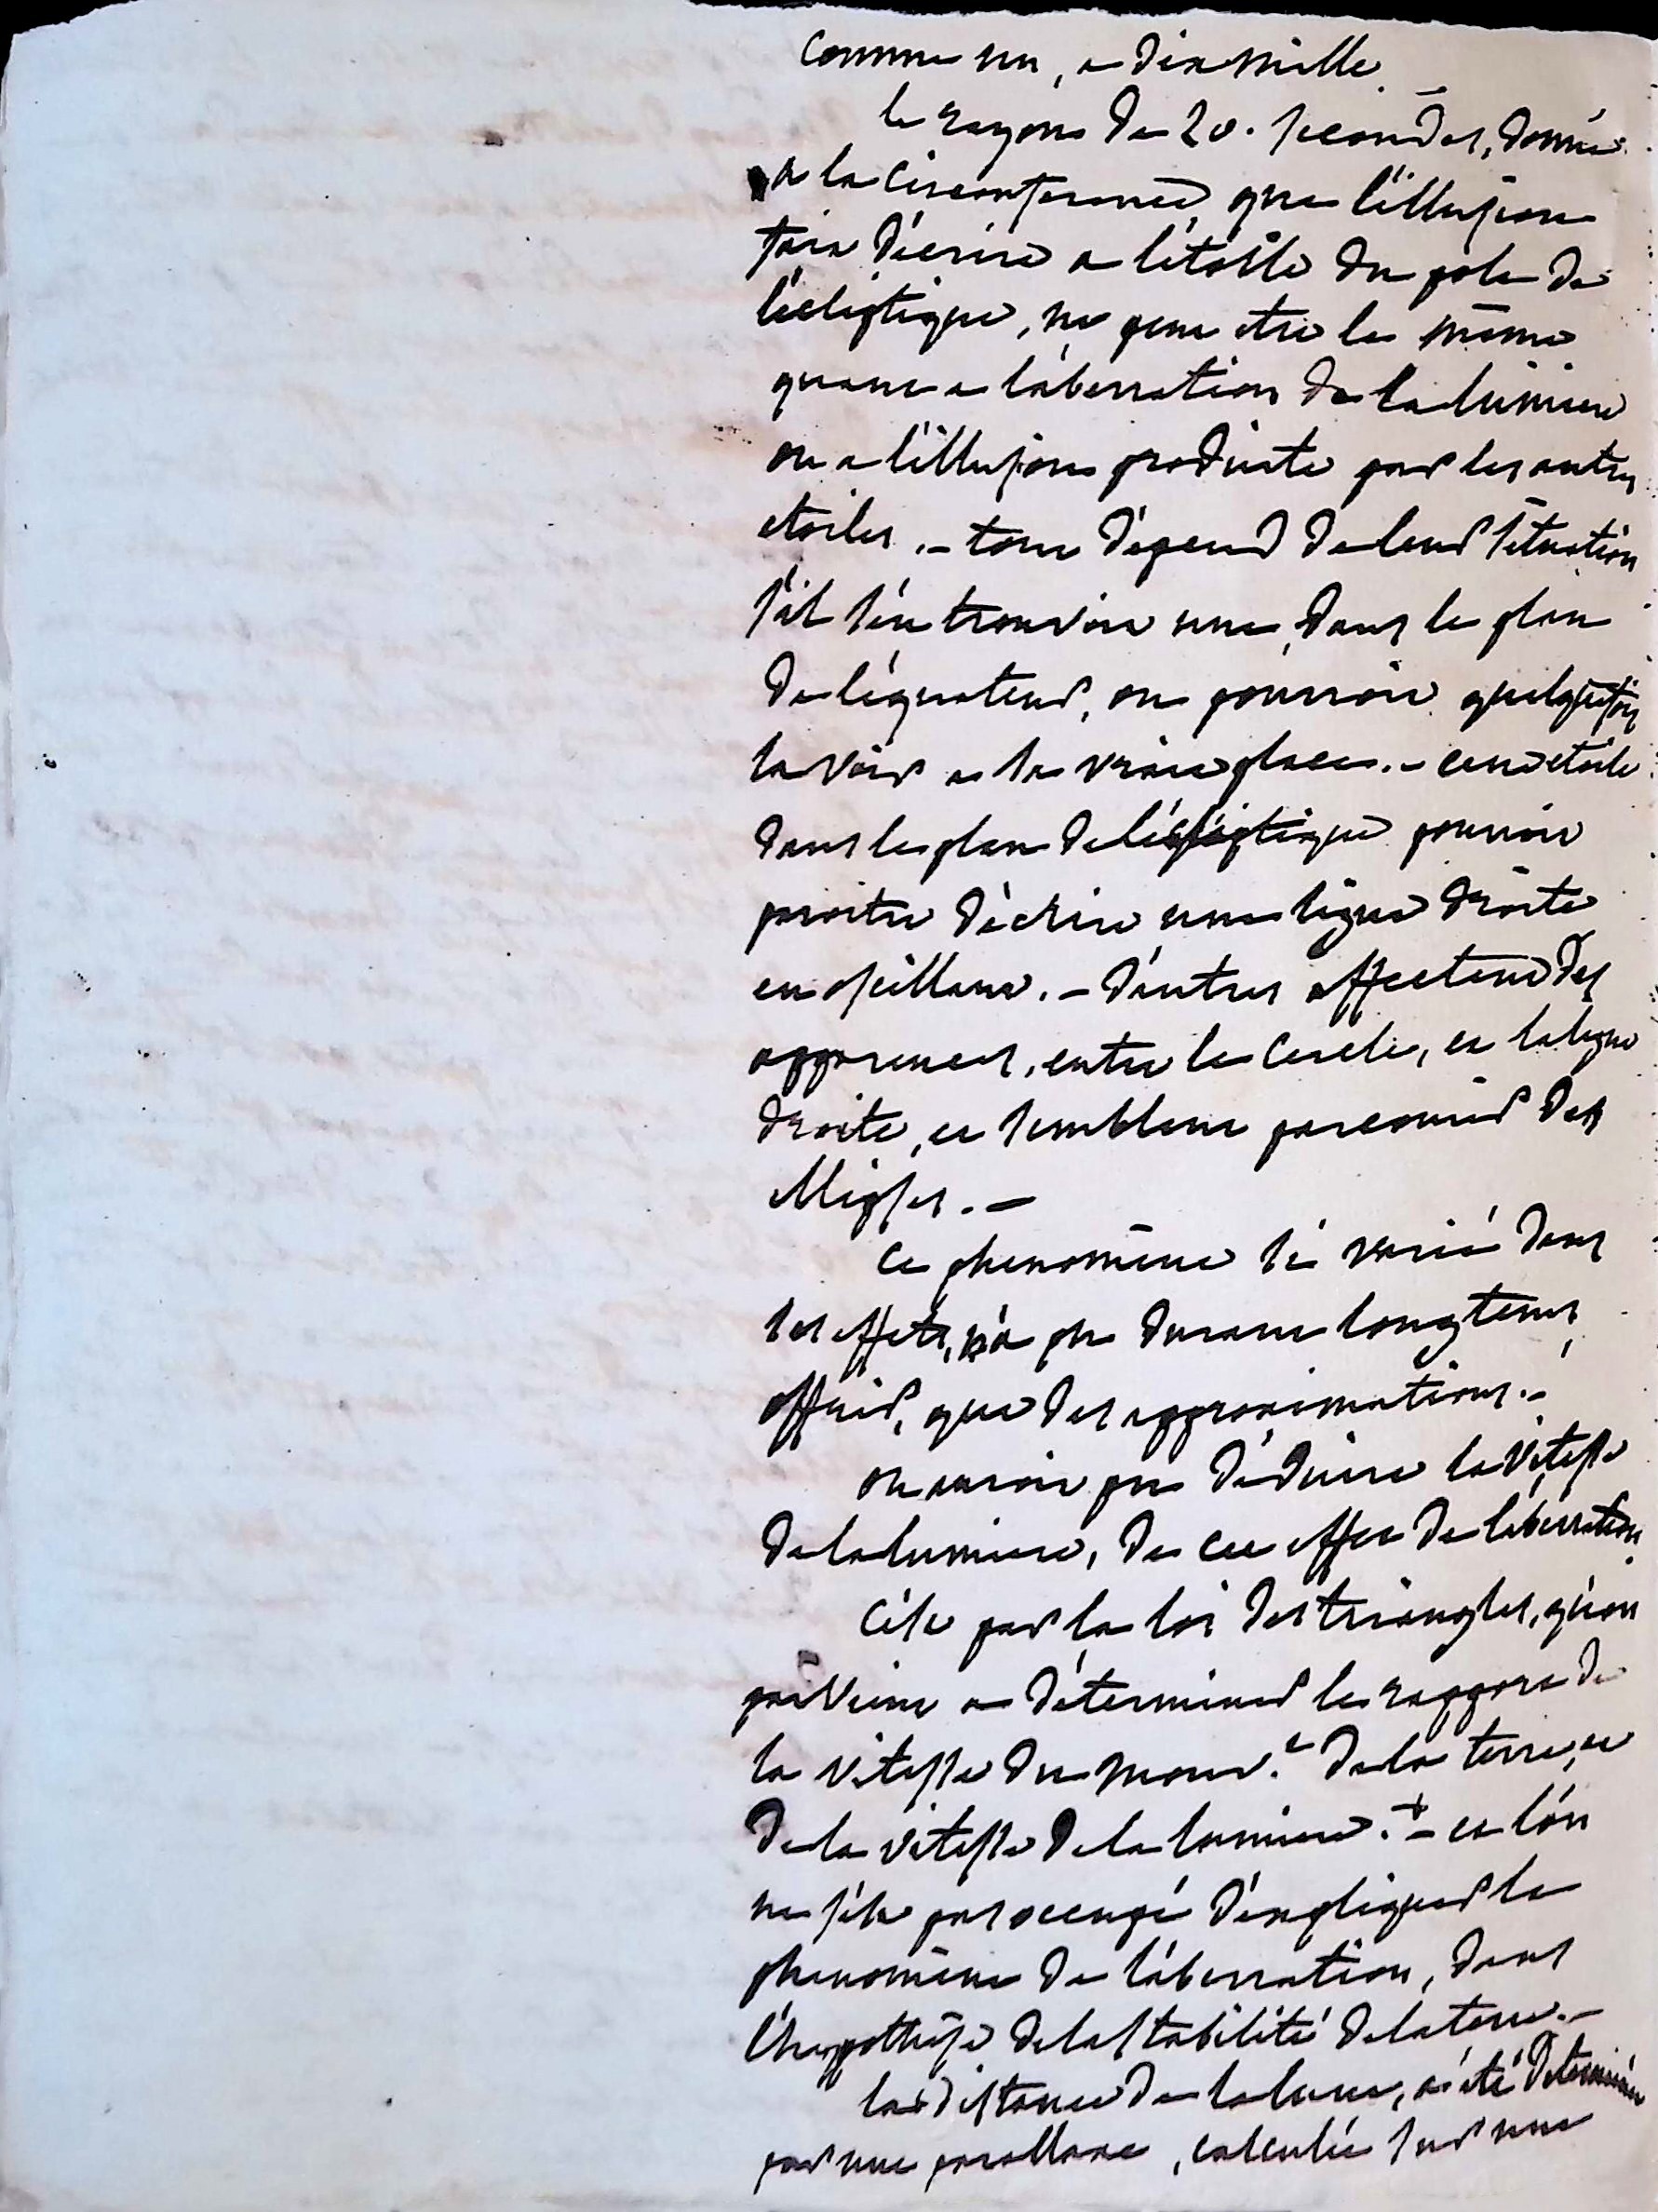 comme un, a dix mille.
le rayon de 20. secondes, donné
a la circonference, que l'illusion
fait décrire a l'étoile du pole de
l'écliptique, ne peut etre le même
quant a l'aberration de la lumiere
ou a l'illusion produite par les autres
etoiles. – tout dépend de leur situation
s'il s'en trouvoit une, dans le plan
de l'équateur, on pourroit quelquefois
la voir a sa vraie place. – cette etoile
dans le plan de l'écliptique pourroit
paroitre décrire une ligne droite
en oscillant. – d'autres affectent des
apparences, entre le cercle, et la ligne
droite, et semblent parcourir des
ellipses. –
ce phenomène si varié dans
ses effets, n'a pu durant longtems
offrir, que des approximations. –
on auroit pu déduire la vitesse
de la lumiere, de cet effet de l'aberration.
c'est par la loi des triangles, qu'on
parvient a déterminer le rapport de
la vitesse du mouv.t de la terre, et
de la vitesse de la lumiere. + – et l'on
ne s'est pas occupé d'expliquer le
phenomène de l'aberration, dans
l'hypothèse de la stabilité de la terre. –
la distance de la lune, a été determinée
par une parallaxe, calculée sur une